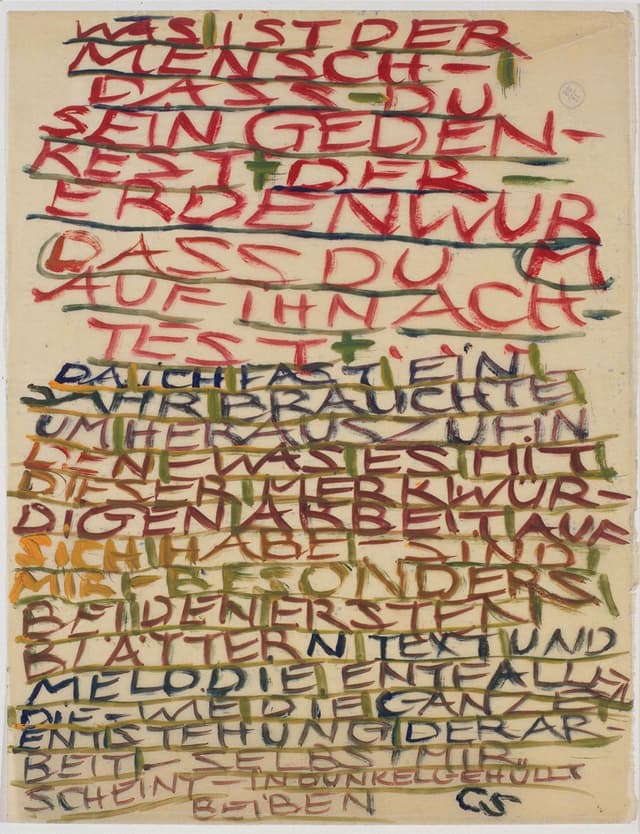 WAS IST DER
MENSCH-
DASS-DU
SEIN GEDEN-
KEST+DER-
ERDENWUR
M
DASS DU
AUF IHN ACH-
TEST+
DA ICH FAST EIN
JAHR BRAUCHTE
UM HERAUSZUFIN
DEN-WAS ES MIT
DIESER MERKWÜR-
DIGEN ARBEIT AUF
SICH HABE SIND
MIR-BESONDERS
BEI DEN ERSTEN
BLÄTTERN TEXT UND
MELODIE ENTFALLEN
DIE-WEIL DIE GANZE
ENTSTEHUNG DER AR-
BEIT-SELBST MIR
SCHEINT-IN DUNKEL GEHÜLLT
BEIBEN CS